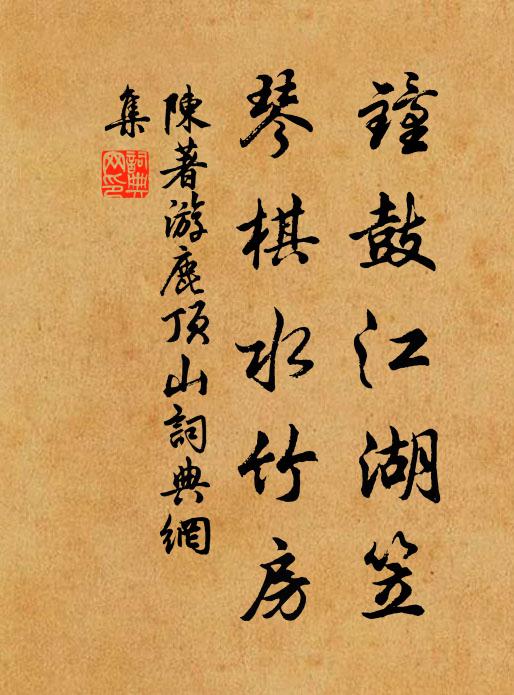 鐘鼓江湖笠
琴棋水竹房
陳著游鹿頂山詞典網
集
詞典
网印